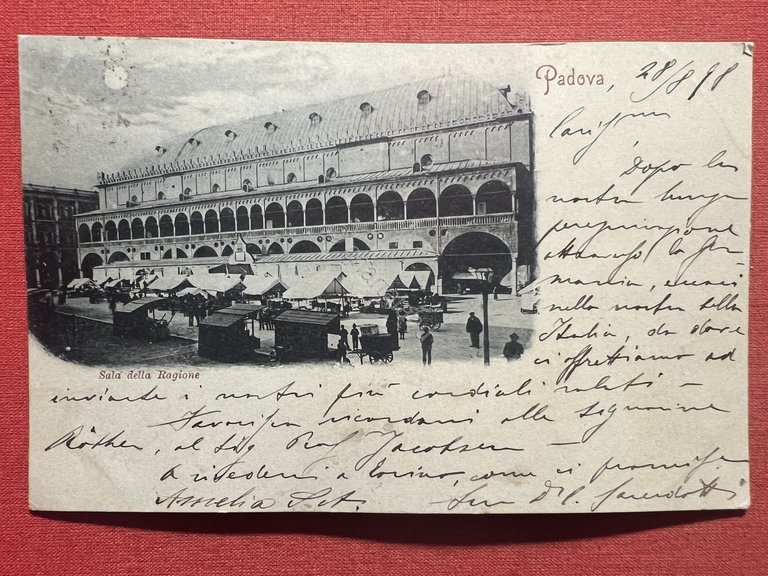 Padova, 28/8 98
Dopo la
nostra lunga
peregrinazione
attraverso la Ger-
mania, eccoci
nella nostra bella
Italia, da dove
ci affrettiamo ad
Sala della Ragione
inviarle i nostri più cordiali saluti -
ricordarci alle Signorine
Röther, al Sig Prof Jacobsen -
A rivederci a Torino, come ci promise
Amelia